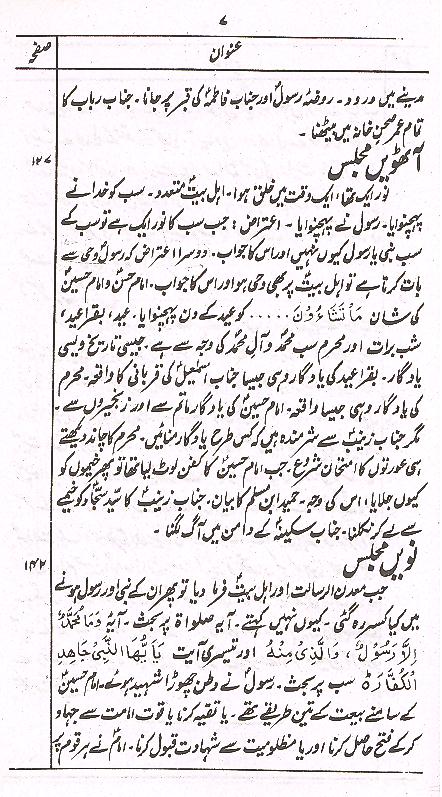 ۷
عنوان صفحہ
مدینے میں ورود۔ روضۂ رسولؐ اور جناب فاطمہؑ کی قبر پر جانا۔ جناب ربابؑ کا
تمام عمر صحن خانہ میں بیٹھنا۔
آٹھویں مجلس ۱۲۷
نور ایک تھا، ایک وقت میں خلق ہوا۔ اہل بیتؑ متعدد۔ سب کو خدا نے
پہچنوایا۔ رسولؐ نے پہچنوایا۔ اعتراض: جب سب کا نور ایک ہے تو سب کے
سب نبی یا رسول کیوں نہیں اور اس کا جواب۔ دوسرا اعتراض کہ رسولؐ وحی سے
بات کرتا ہے تو اہل بیتؑ پر بھی وحی ہو اور اس کا جواب۔ امام حسنؑ و امام حسینؑ
کی شان مَا تَشَاءُوْنَ ..... کو عید کے دن پہچنوایا۔ عید، بقرا عید،
شب برات اور محرم سب محمدؐ و آلِ محمدؐ کی وجہ سے ہے۔ جیسی تاریخ ویسی
یادگار۔ بقرا عید کی یادگار وہی جیسا جناب اسمٰعیلؑ کی قربانی کا واقعہ۔ محرم
کی یادگار وہی جیسا واقعہ۔ امام حسینؑ کی یادگار ماتم سے اور زنجیروں سے۔
مگر جناب زینبؑ سے شرمندہ ہیں کہ کس طرح یادگار منائیں۔ محرم کا چاند دیکھتے
ہی عورتوں کا امتحان شروع۔ جب امام حسینؑ کا کفن لوٹ لیا تھا تو پھر خیموں کو
کیوں جلایا، اس کی وجہ۔ حمید ابن مسلم کا بیان۔ جناب زینبؑ کا سید سجادؑ کو خیمے
سے لے کر نکلنا۔ جناب سکینہؑ کے دامن میں آگ لگنا۔
نویں مجلس ۱۴۲
جب معدن الرسالت اور اہل بیتؑ فرما دیا تو پھر ان کے نبی اور رسول ہونے
میں کیا کسر رہ گئی۔ کیوں نہیں کہتے۔ آیہ صلواة پر بحث۔ آیہ وَمَا مُحَمَّدٌ
اِلَّا رَسُوْلٌ، وَالَّذِیْ مِنْهُ اور تیسری آیت یٰاَیُّهَا النَّبِیُّ جَاهِدِ
الْكُفَّارَ سب پر بحث۔ رسولؐ نے وطن چھوڑا شہید ہوئے۔ امام حسینؑ
کے سامنے بیعت کے تین طریقے تھے۔ یا تقیہ کرنا یا قوت امامت سے جہاد
کر کے فتح حاصل کرنا اور یا مظلومیت سے شہادت قبول کرنا۔ امامؑ نے ہر قوم پر